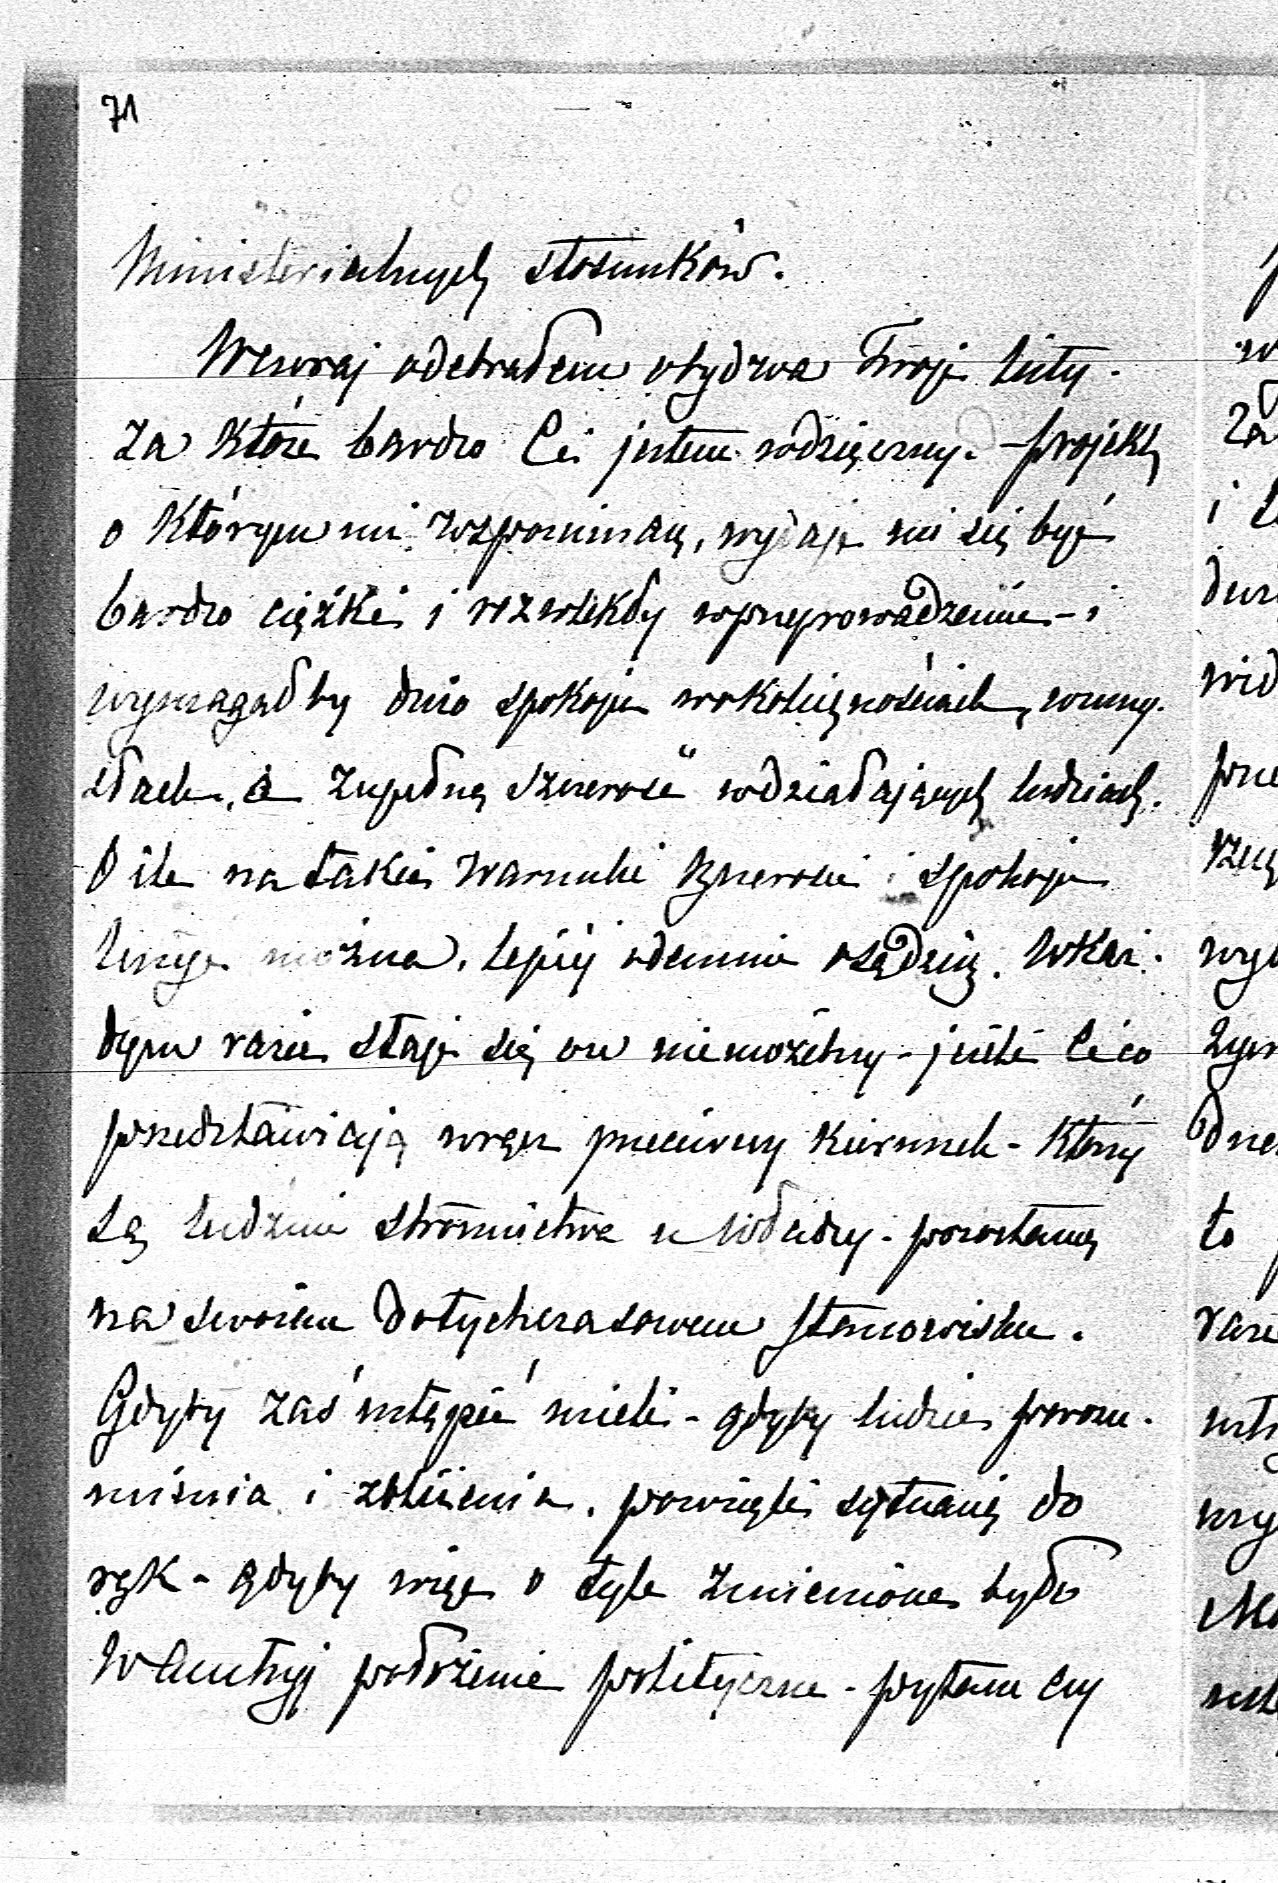 71
Ministerialnych stosunków.
Wczoraj odebrałem obydwa Twoje listy.
za które bardzo Ci jestem wdzięczny. - projekt
o którym mi wspominasz, wydaje mi się być
bardzo ciężki i rozwlekły w przeprowadzeniu - i
wymagałby dużo spokoju w okolicznościach, w umy-
słach, a zupełną szczerość w działających ludziach.
O ile na takie warunki szczerości i spokoju
liczyć można, lepiej odemnie osądzisz. W każ-
dym razie staje się on niemożebny - jeżeli Ci co
przedstawiają wręcz przeciwny kierunek - którzy
są ludźmi stronnictwa u władzy - pozostaną
na swoiem dotychczasowem stanowisku.
Gdyby zaś ustąpić mieli - gdyby ludzie porozu-
mienia i zbliżenia, powzięli sytuację do
rąk - gdyby więc o tyle zmienione było
w Austryj położenie polityczne - pytam czy